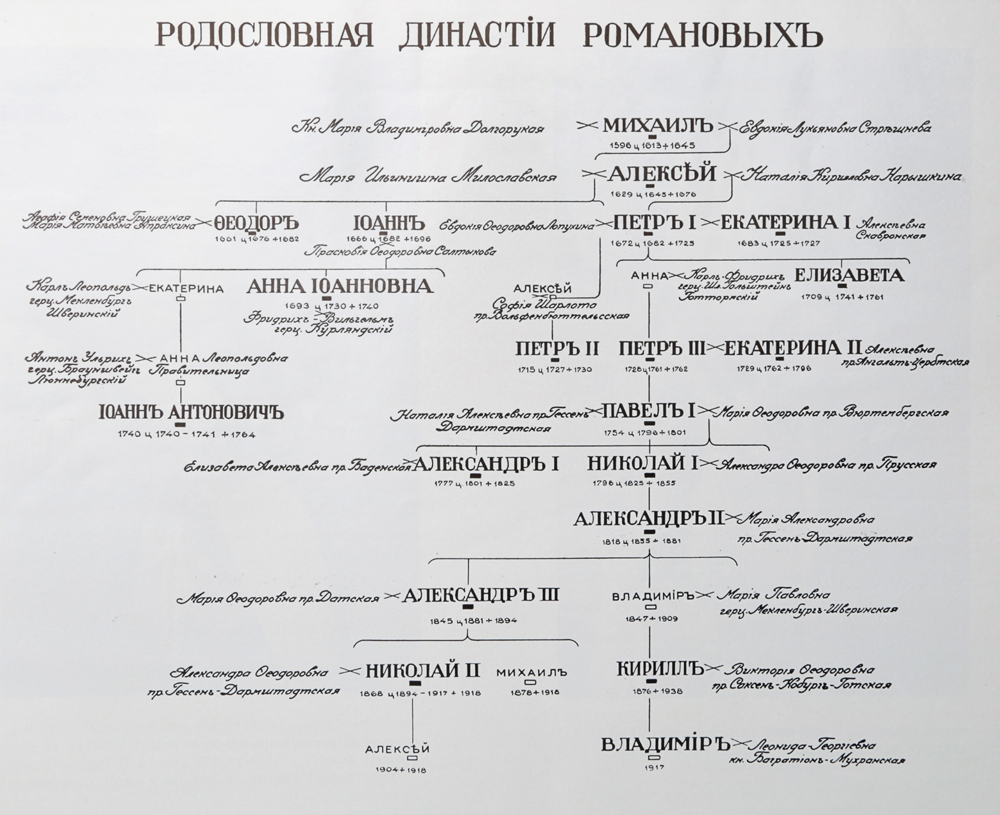 РОДОСЛОВНАЯ ДИНАСТІИ РОМАНОВЫХЪ
Кн. Марія Владиміровна Долгорукая МИХАИЛЪ Евдокія Лукьяновна Стрѣшнева
1596 ц 1613 + 1645
Марія Ильинишна Милославская АЛЕКСѢЙ Наталія Кирилловна Нарышкина
1629 ц 1645 + 1676
Агафія Семеновна Грушецкая
Марія Матвѣевна Апраксина
ѲЕОДОРЪ ІОАННЪ Евдокія Ѳеодоровна Лопухина ПЕТРЪ I ЕКАТЕРИНА I Алексѣевна
Скавронская
1661 ц 1676 + 1682 1666 ц 1682 + 1696 1672 ц 1682 + 1725 1683 ц 1725 + 1727
Прасковія Ѳеодоровна Салтыкова
Карлъ Леопольдъ ЕКАТЕРИНА
герц. Мекленбургъ
Шверинскій
АННА ІОАННОВНА
1693 ц 1730 + 1740
Фридрихъ-Вильгельмъ
герц. Курляндскій
АЛЕКСѢЙ
Софія Шарлота
пр. Вольфенбюттельсская
АННА Карлъ-Фридрихъ
герц. Шл. Гольштейнъ
Готторпскій
ЕЛИЗАВЕТА
1709 ц 1741 + 1761
Антонъ Ульрихъ АННА Леопольдовна
герц. Брауншвейгъ Правительница
Люннебургскій
ПЕТРЪ II ПЕТРЪ III ЕКАТЕРИНА II Алексѣевна
пр. Ангальтъ-Цербтская
1715 ц 1727 + 1730 1728 ц 1761 + 1762 1729 ц 1762 + 1796
ІОАННЪ АНТОНОВИЧЪ
1740 ц 1740 - 1741 + 1764
Наталія Алексѣевна пр. Гессенъ ПАВЕЛЪ I Марія Ѳеодоровна пр. Вюртембергская
Дармштадтская
1754 ц 1796 + 1801
Елизавета Алексѣевна пр. Баденская АЛЕКСАНДРЪ I НИКОЛАЙ I Александра Ѳеодоровна пр. Прусская
1777 ц 1801 + 1825 1796 ц 1825 + 1855
АЛЕКСАНДРЪ II Марія Александровна
пр. Гессенъ-Дармштадтская
1818 ц 1855 + 1881
Марія Ѳеодоровна пр. Датская АЛЕКСАНДРЪ III ВЛАДИМІРЪ Марія Павловна
герц. Мекленбургъ-Шверинская
1845 ц 1881 + 1894 1847 + 1909
Александра Ѳеодоровна НИКОЛАЙ II МИХАИЛЪ КИРИЛЛЪ Викторія Ѳеодоровна
пр. Гессенъ-Дармштадтская пр. Саксенъ-Кобургъ-Готская
1868 ц 1894 - 1917 + 1918 1878 + 1918 1876 + 1938
АЛЕКСѢЙ ВЛАДИМІРЪ Леонида Георгіевна
кн. Багратіонъ-Мухранская
1904 + 1918 1917